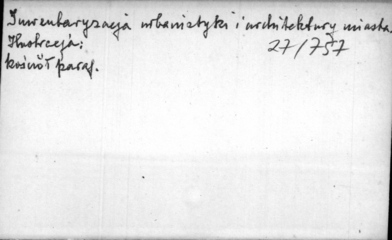 Inwentaryzacja urbanistyki i architektury miasta.
Ilustracja:
27/757
kościół paraf.